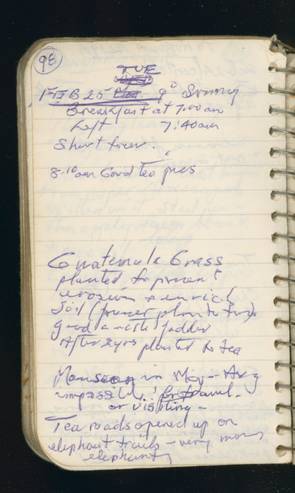 98
TUE
FEB 25 9° Sunny
Breakfast at 7.00am
Left 7:40am
Short
8-10am Good Tea
Guatemala Grass
planted to prevent
erosion + enrich
soil (
good
After 2yrs planted to tea
Monsoon in May - Aug
for travel
or visiting -
Tea roads opened up on
elephant trails - very many
elephants